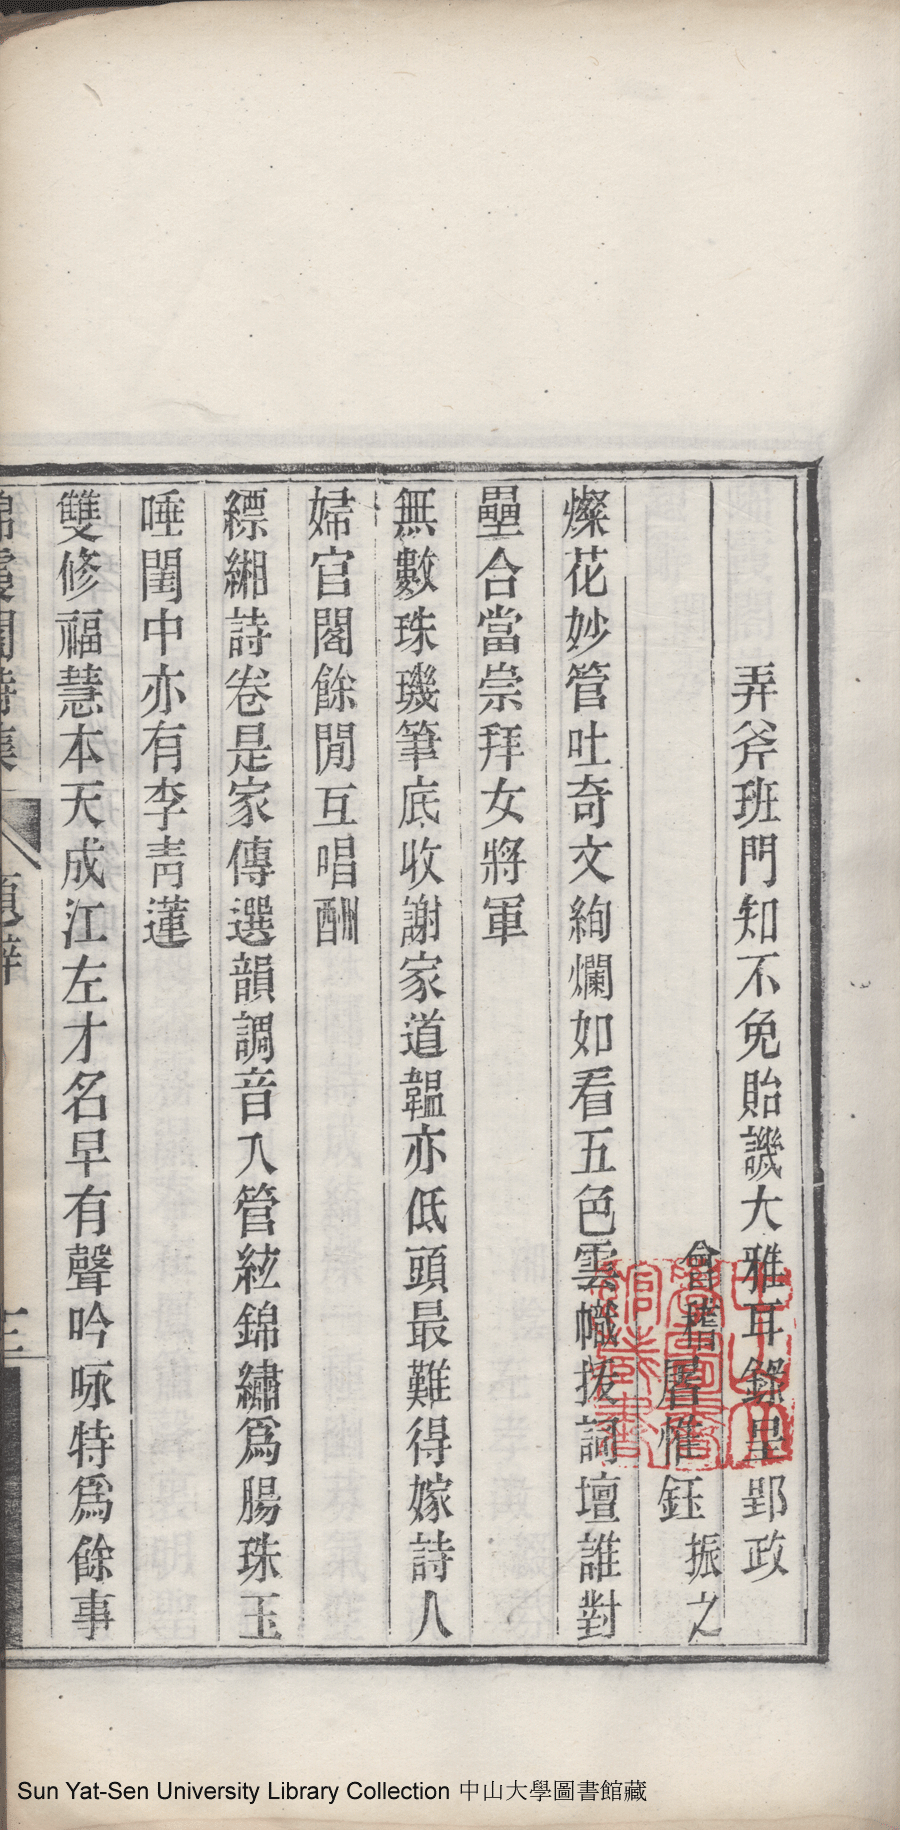 弄斧班門知不免貽譏大雅耳錄呈郢政
會稽屠惟鈺振之
燦花妙管吐奇文絢爛如看五色雲幟拔詞壇誰對
壘合當崇拜女將軍
無數珠璣筆底收謝家道韞亦低頭最難得嫁詩人
婦官閣餘閒互唱酬
縹緗詩卷是家傳選韻調音入管絃錦繡爲腸珠玉
唾閨中亦有李青蓮
雙修福慧本天成江左才名早有聲吟咏特爲餘事
錦霞閣詩集
題辭
三
中山大學圖書館藏書
Sun Yat-Sen University Library Collection 中山大學圖書館藏